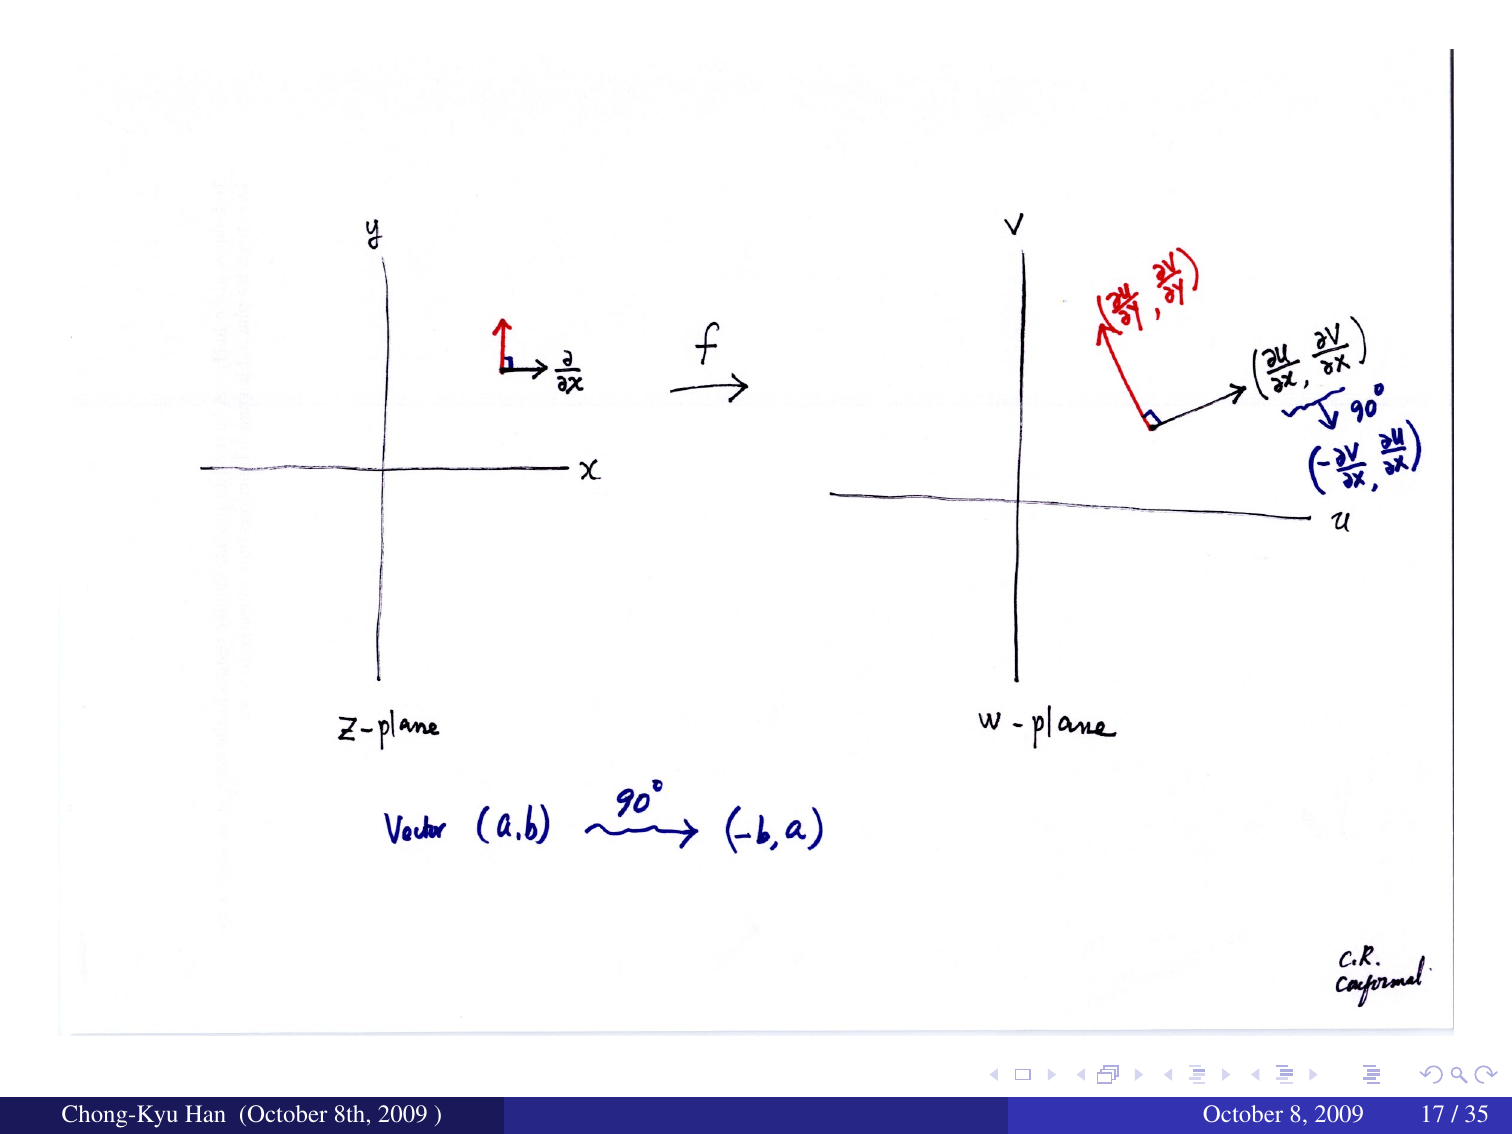 y
∂/∂x
x
z-plane
f
v
(∂u/∂y, ∂v/∂y)
(∂u/∂x, ∂v/∂x)
90°
(-∂v/∂x, ∂u/∂x)
u
w-plane
Vector (a,b) 90° (-b, a)
C.R.
Conformal
Chong-Kyu Han (October 8th, 2009 ) October 8, 2009 17 / 35